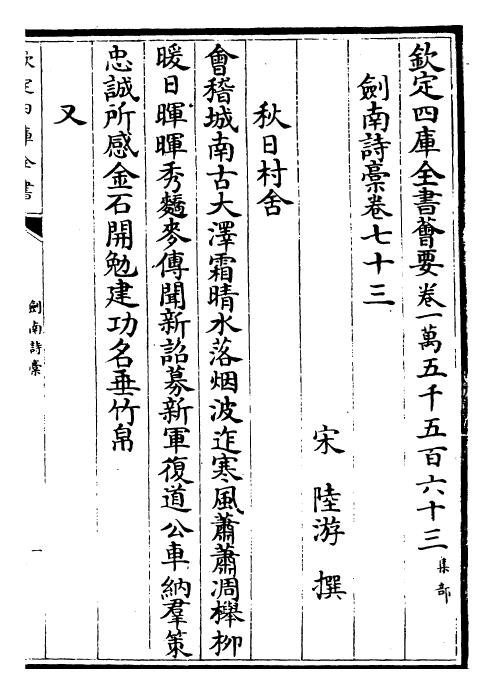 欽定四庫全書薈要卷一萬五千五百六十三集部
劍南詩藁卷七十三
宋陸游撰
秋日村舍
會稽城南古大澤霜晴水落烟波迮寒風蕭蕭凋櫸柳
暖日暉暉秀麵麥傳聞新詔募新軍復道公車納羣策
忠誠所感金石開勉建功名垂竹帛
又
欽定四庫全書
劍南詩藁
一